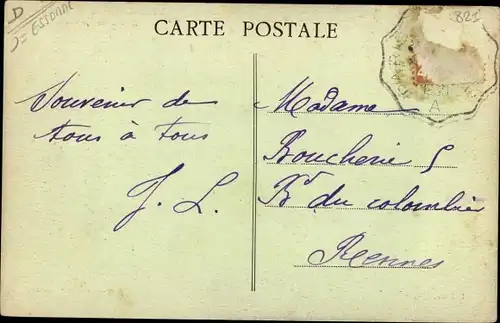 D
CARTE POSTALE
821
A
Souvenir de
tous à tous
J. L.
Madame
Boucherie 5
Bd du colombier
Rennes